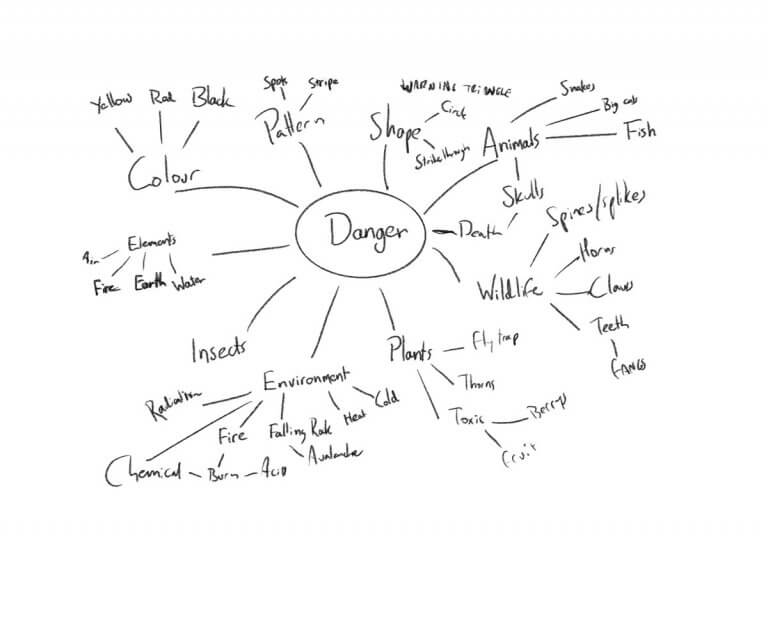 Spots
Stripe
Yellow
Red
Black
Pattern
Colour
WARNING TRIANGLE
Circle
Shape
Strikethrough
Snakes
Big cats
Fish
Animals
Skulls
Death
Danger
Spines/spikes
Horns
Claws
Wildlife
Teeth
FANGS
Elements
Fire
Earth
Water
Insects
Plants
Fly trap
Thorns
Toxic
Berrys
Fruit
Environment
Radiation
Cold
Heat
Fire
Falling Rok
Avalanche
Chemical
Burn
Acid